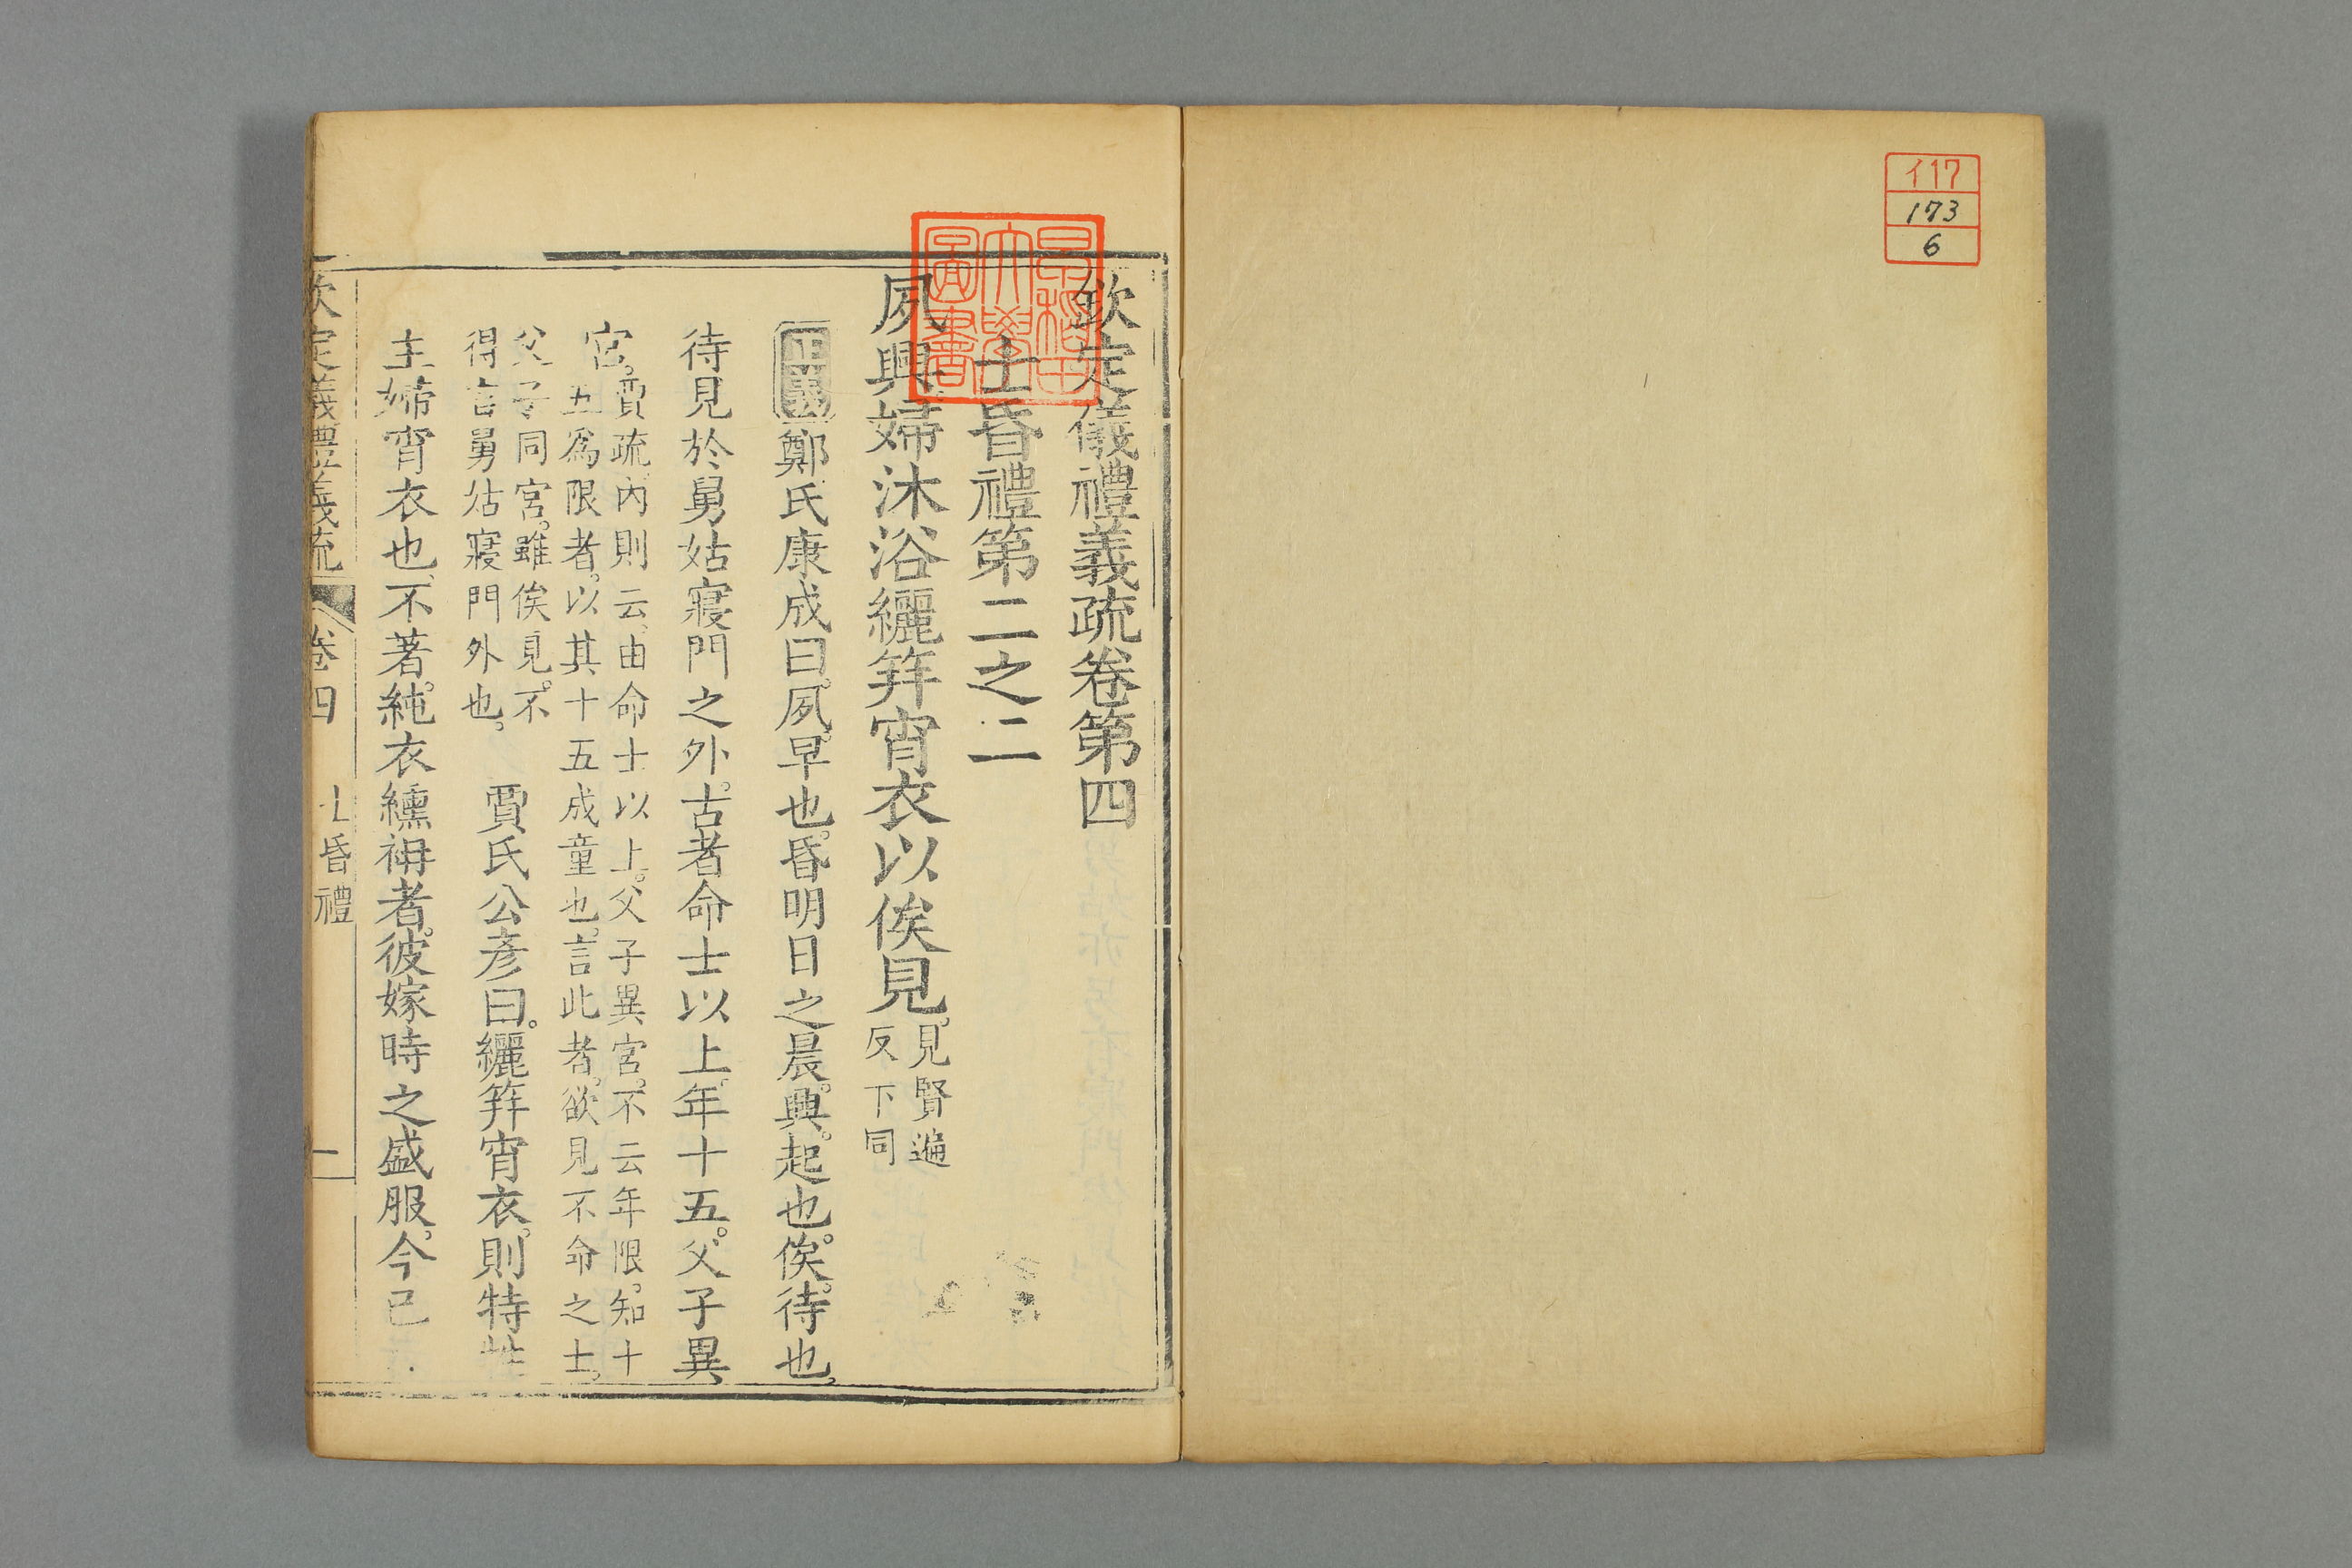 イ17
173
6
欽定儀禮義疏卷第四
早稻田大學圖書
士昏禮第二之二
夙興婦沐浴纚笄宵衣以俟見。見賢遍
反下同
正義鄭氏康成曰。夙。早也。昏明日之晨。興。起也。俟。待也。
待見於舅姑寢門之外。古者命士以上。年十五。父子異
宮。賈疏。內則云。由命士以上。父子異宮。不云年限。知十
五為限者。以其十五成童也。言此者。欲見不命之士。
父子同宮。雖俟見。不
得言舅姑寢門外也。
賈氏公彥曰。纚笄宵衣。則特牲
主婦宵衣也。不著純衣纁袡者。彼嫁時之盛服。今已
欽定儀禮義疏 卷四 士昏禮 一